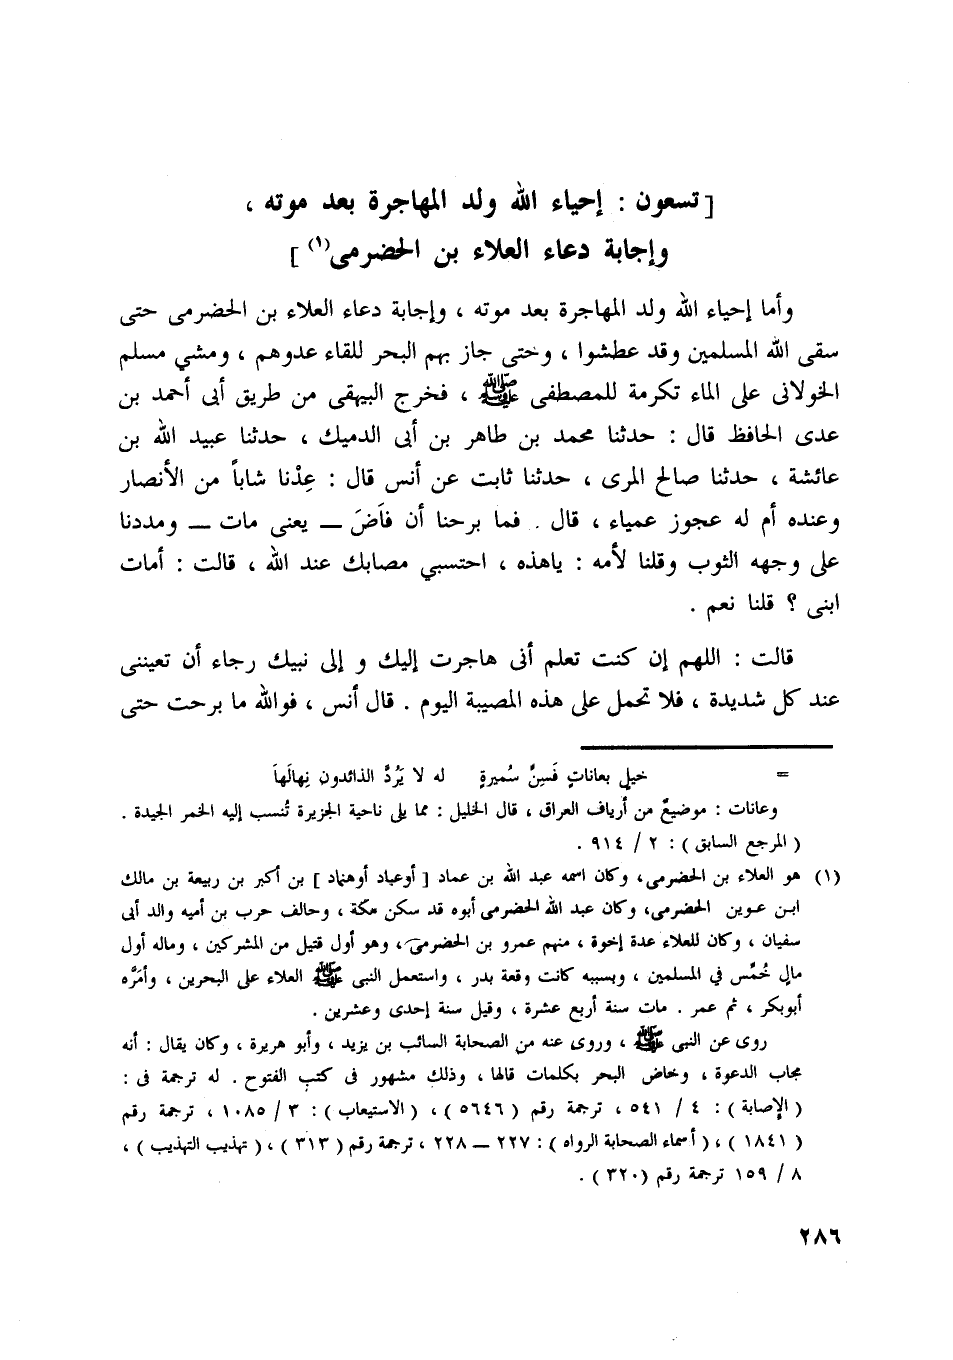 [ تسعون : إحياء الله ولد المهاجرة بعد موته ،
وإجابة دعاء العلاء بن الحضرمى(١) ]
وأما إحياء الله ولد المهاجرة بعد موته ، وإجابة دعاء العلاء بن الحضرمى حتى
سقى الله المسلمين وقد عطشوا ، وحتى جاز بهم البحر للقاء عدوهم ، ومشي مسلم
الخولانى على الماء تكرمة للمصطفى ﷺ ، فخرج البيهقى من طريق أبى أحمد بن
عدى الحافظ قال : حدثنا محمد بن طاهر بن أبى الدميك ، حدثنا عبيد الله بن
عائشة ، حدثنا صالح المرى ، حدثنا ثابت عن أنس قال : عِدْنا شاباً من الأنصار
وعنده أم له عجوز عمياء ، قال . فما برحنا أن فاَضَ — يعنى مات — ومددنا
على وجهه الثوب وقلنا لأمه : ياهذه ، احتسبي مصابك عند الله ، قالت : أمات
ابنى ؟ قلنا نعم .
قالت : اللهم إن كنت تعلم أنى هاجرت إليك و إلى نبيك رجاء أن تعيننى
عند كل شديدة ، فلا تحمل على هذه المصيبة اليوم . قال أنس ، فوالله ما برحت حتى
= خيلٍ بعاناتٍ فَسِنِّ سُميرةٍ له لا يَرُدَّ الذائدون نِهالَهاَ
وعانات : موضيعٌ من أرياف العراق ، قال الخليل : مما يلى ناحية الجزيرة تُنسب إليه الخمر الجيدة .
( المرجع السابق ) : ٢ / ٩١٤ .
(١) هو العلاء بن الحضرمى، وكان اسمه عبد الله بن عماد [ أوعباد أوهناد ] بن أكبر بن ربيعة بن مالك
ابن عوين الحضرمى، وكان عبد الله الحضرمى أبوه قد سكن مكة ، وحالف حرب بن أميه والد أبى
سفيان ، وكان للعلاء عدة إخوة ، منهم عمرو بن الحضرمى، وهو أول قتيل من المشركين ، وماله أول
مالٍ خُمِّس في المسلمين ، وبسببه كانت وقعة بدر ، واستعمل النبى ﷺ العلاء على البحرين ، وأمَرَّه
أبوبكر ، ثم عمر . مات سنة أربع عشرة ، وقيل سنة إحدى وعشرين .
روى عن النبى ﷺ ، وروى عنه من الصحابة السائب بن يزيد ، وأبو هريرة ، وكان يقال : أنه
مجاب الدعوة ، وخاض البحر بكلمات قالها ، وذلك مشهور فى كتب الفتوح . له ترجمة فى :
( الإصابة ) : ٤ / ٥٤١ ، ترجمة رقم ( ٥٦٤٦ ) ، ( الاستيعاب ) : ٣ / ١٠٨٥ ، ترجمة رقم
( ١٨٤١ ) ، ( أسماء الصحابة الرواه ) : ٢٢٧ — ٢٢٨ ، ترجمة رقم ( ٣١٣ ) ، ( تهذيب التهذيب ) ،
٨ / ١٥٩ ترجمة رقم (٣٢٠ ) .
٢٨٦